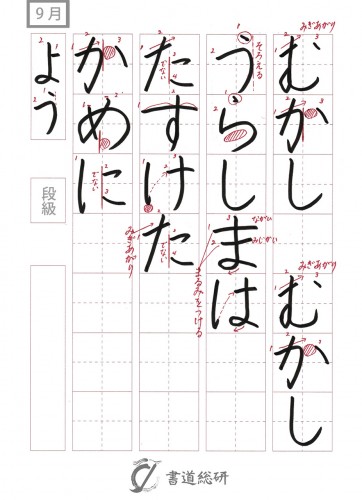 みぎあがり
むかし
みぎあがり
むかし
そろえる
うらしまは
ながい
みじかい
まるみをつける
たすけた
でない
でない
みぎあがり
かめに
でない
9月
よう
段級
書道総研